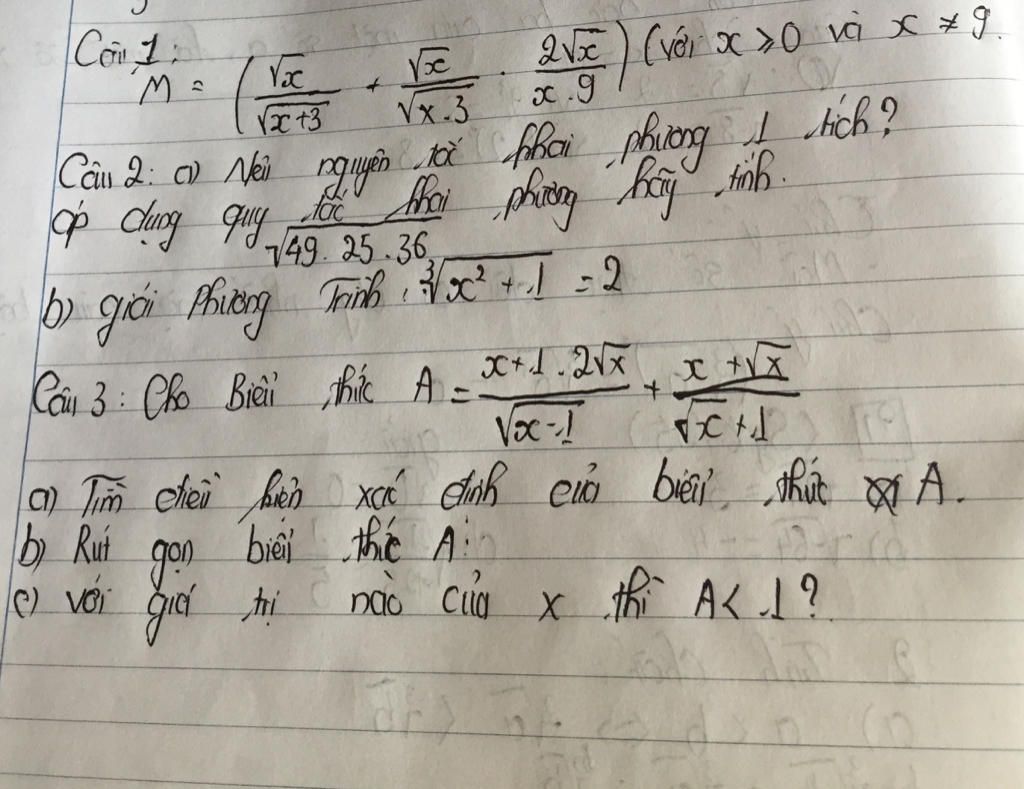 Câu 1:
M = (√x/√x+3 + √x/√x.3 . 2√x/x.9) (với x ≥ 0 và x ≠ 9.
Câu 2: a) Nêu nguyên tắc khai phương 1 tích?
áp dụng quy tắc khai phương hãy tính.
√49.25.36
b) giải Phương Trình: ∛x² + 1 = 2
Câu 3: Cho Biểu thức A = x+1.2√x/√x-1 + x+√x/√x+1
a) Tìm điều kiện xác định của biểu thức A.
b) Rút gọn biểu thức A:
c) với giá trị nào của x thì A < 1?